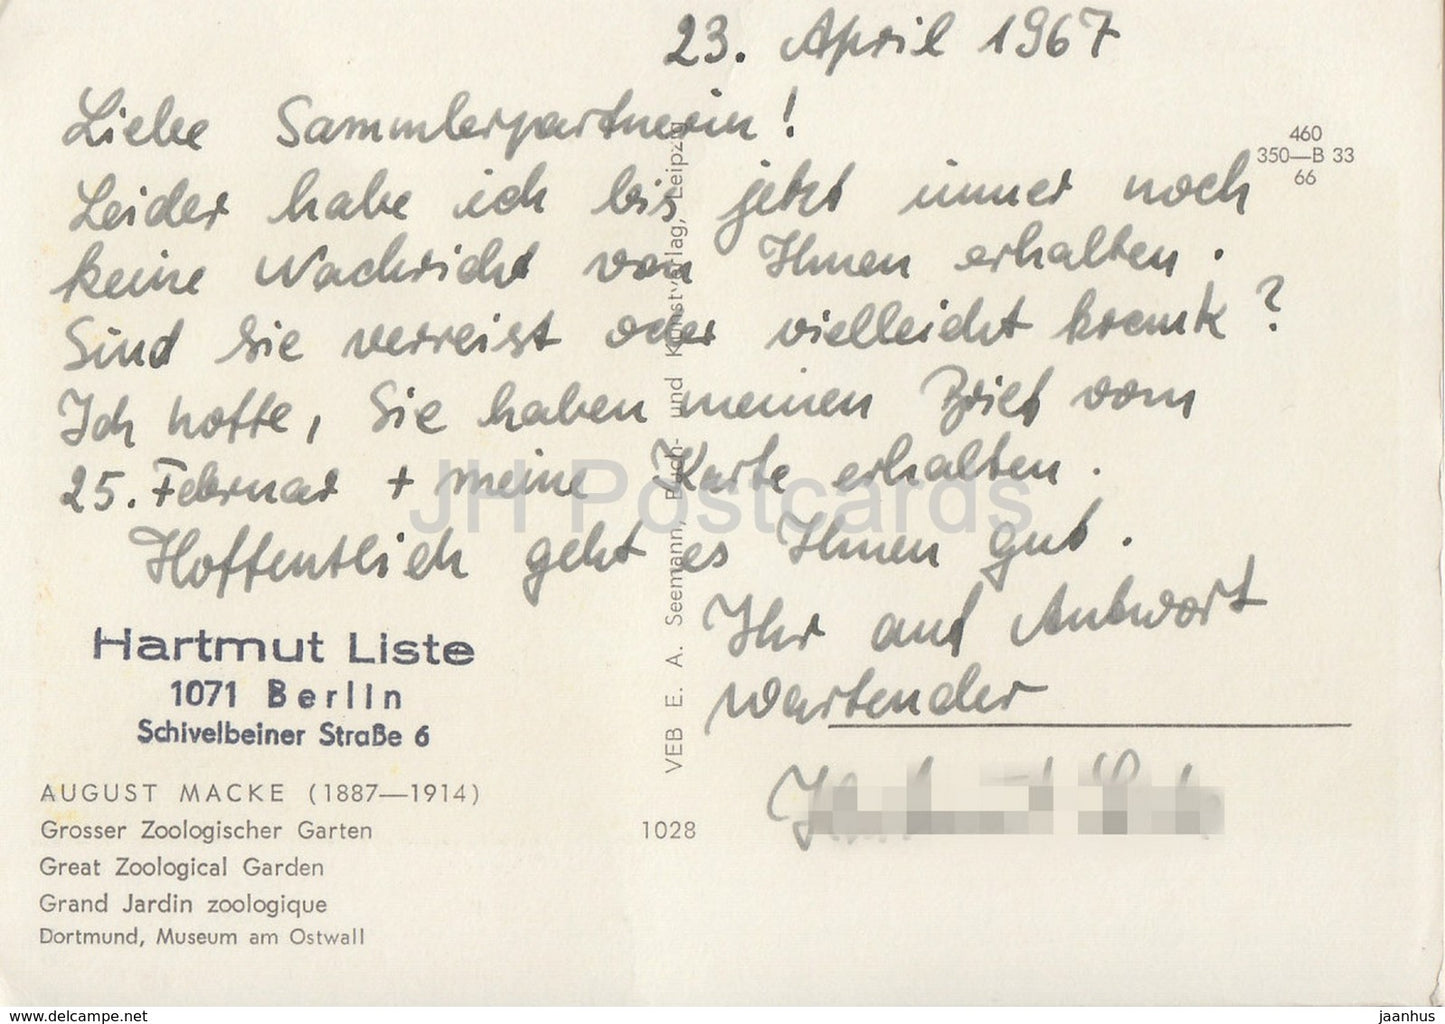 23. April 1967
Liebe Sammlerpartnerin!
Leider habe ich bis jetzt immer noch
keine Nachricht von Ihnen erhalten.
Sind Sie verreist oder vielleicht krank?
Ich hoffe, Sie haben meinen Brief vom
25. Februar + meine Karte erhalten.
Hoffentlich geht es Ihnen gut.
Ihr auf Antwort
wartender
460
350—B 33
66
VEB E. A. Seemann, Buch- und Kunstverlag, Leipzig
JH Postcards
Hartmut Liste
1071 Berlin
Schivelbeiner Straße 6
AUGUST MACKE (1887—1914)
Grosser Zoologischer Garten
Great Zoological Garden
Grand Jardin zoologique
Dortmund, Museum am Ostwall
1028
www.delcampe.net
jaanhus